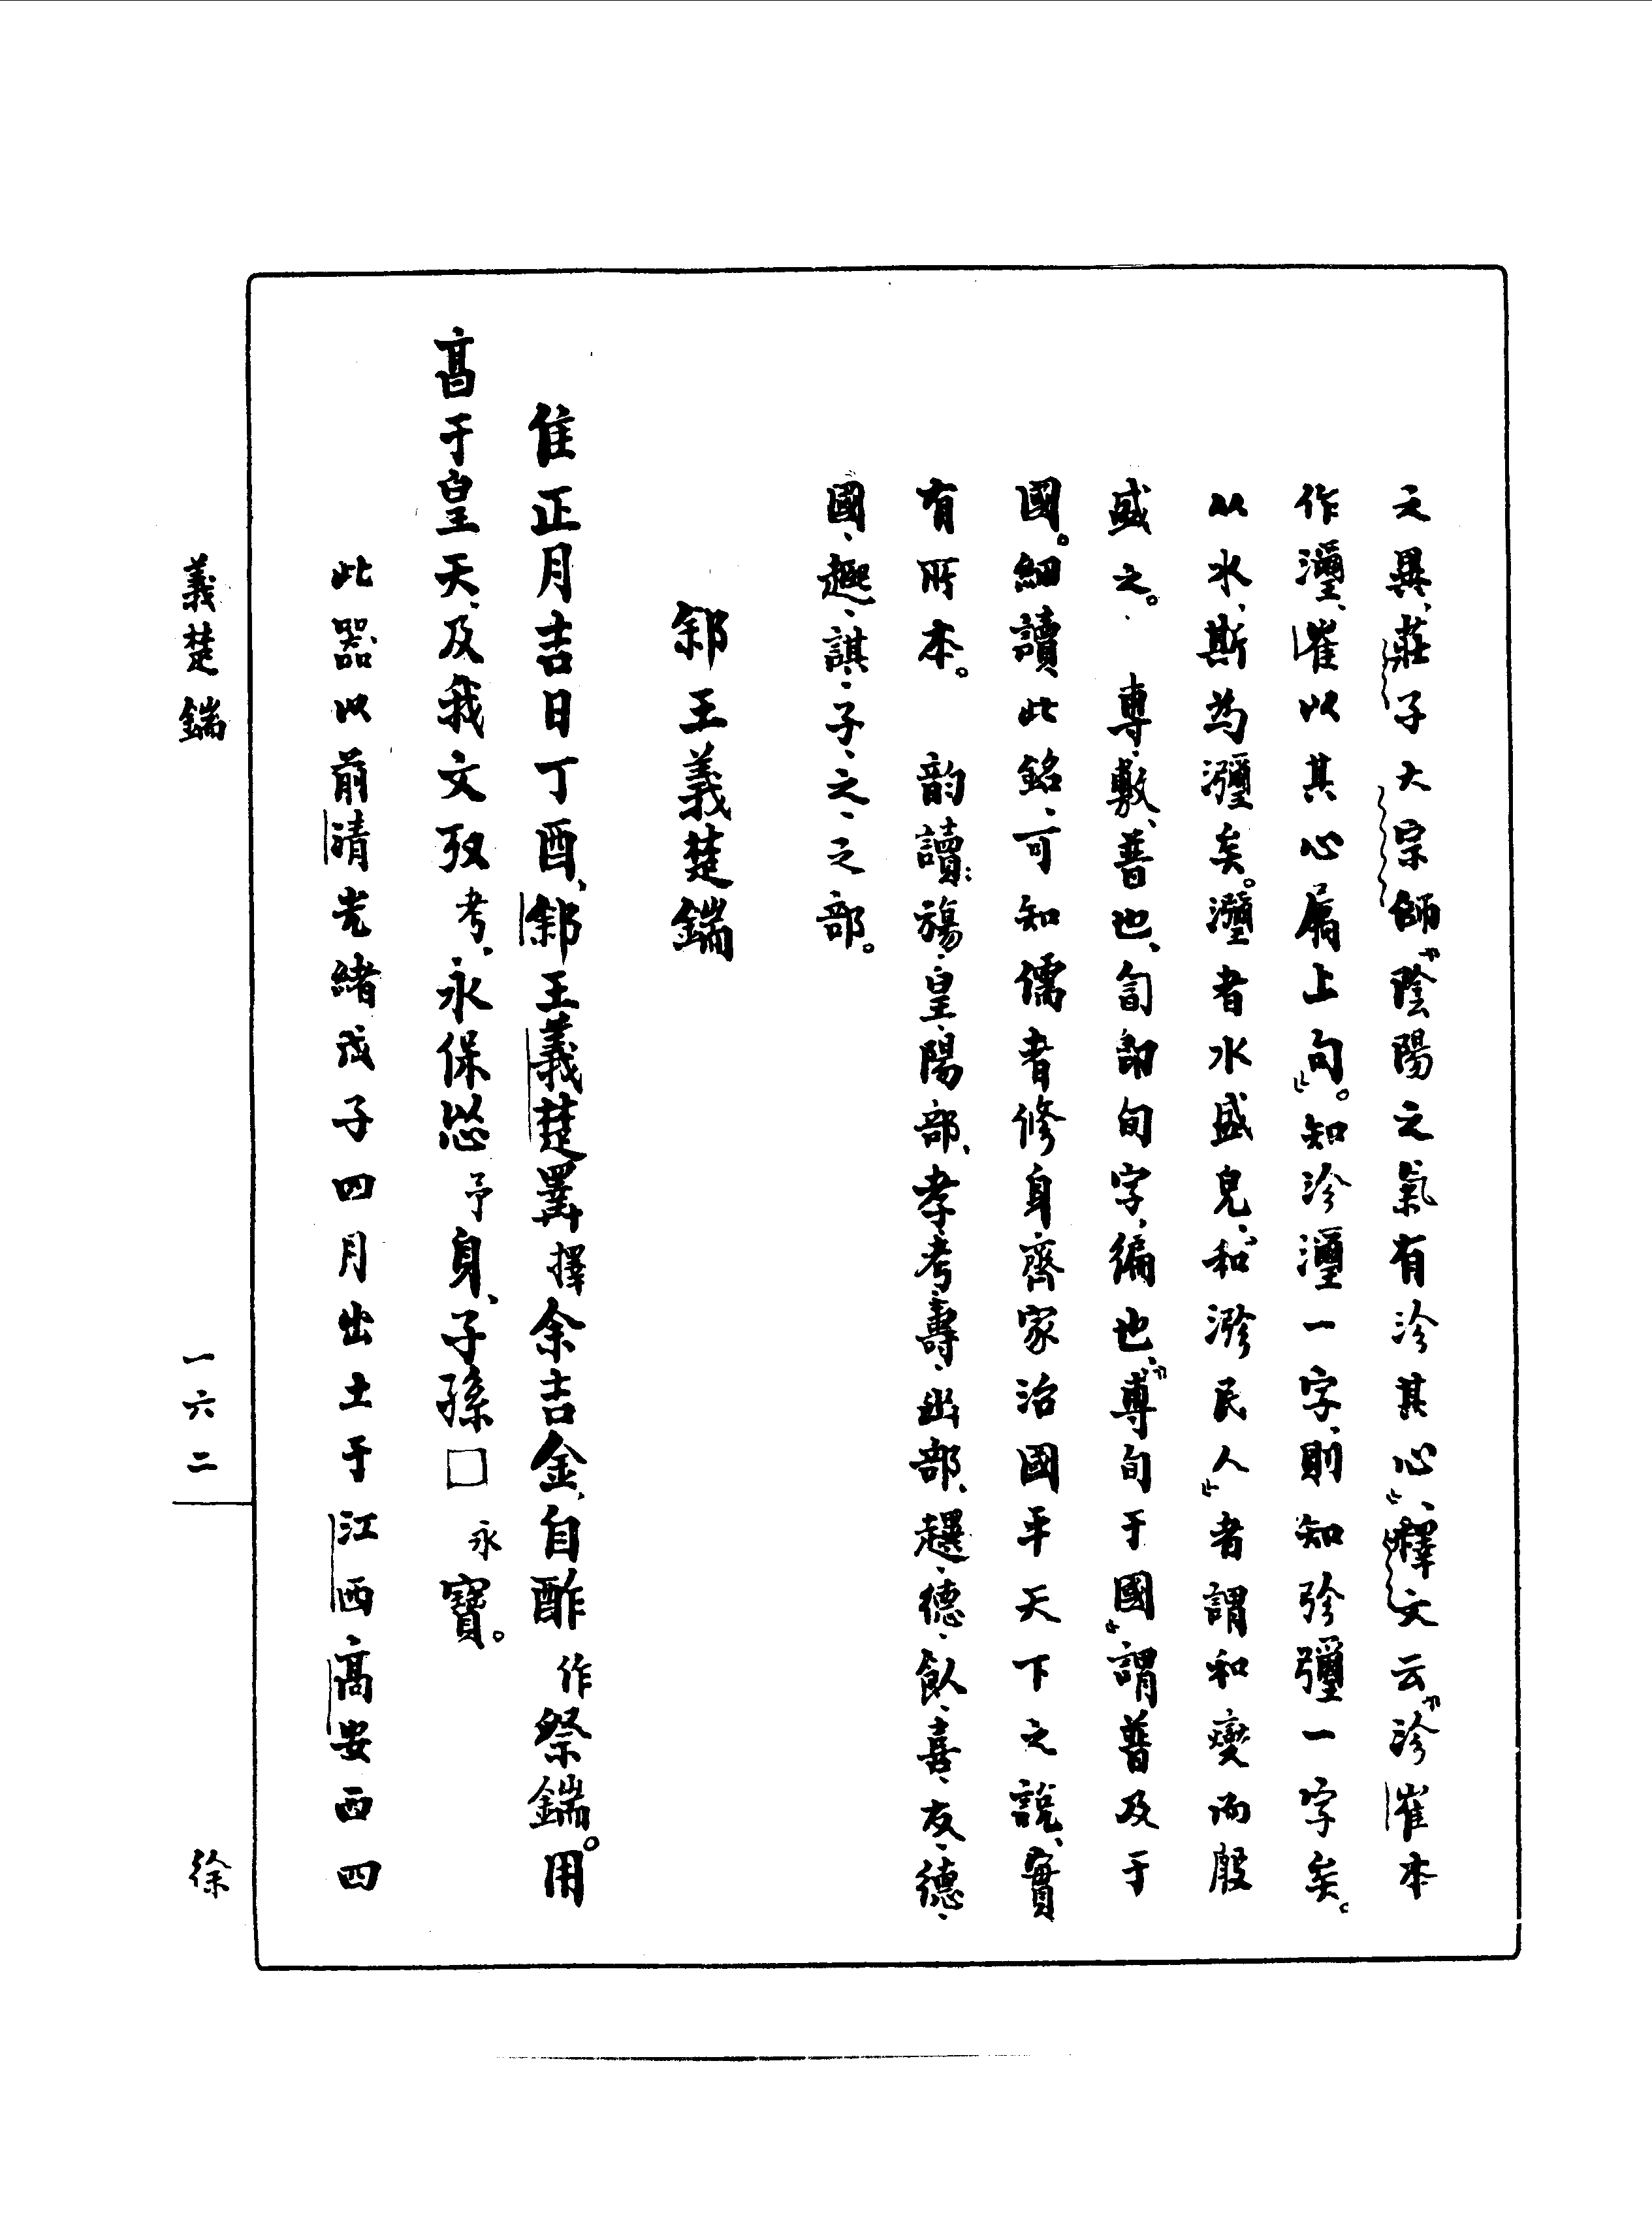 文異、莊子大宗師「陰陽之氣有沴其心」、釋文云「沴崔本
作灅、崔以其心屬上句」。知沴灅一字、則知
以水、斯為
矣。
者水盛皃、「和
民人」者謂和燮而殷
盛之。專、敷、普也、訇即旬字、徧也、「專旬于國」謂普及于
國。細讀此銘、可知儒者修身齊家治國平天下之說、實
有所本。韵讀：
皇、陽部、孝、考、壽、幽部、趩、德、飤、喜、友、德、
國、趣、諆、子、之、之部。
䣄王義楚鍴
隹正月吉日丁酉、䣄王義楚𢍰擇余吉金、自酢作祭鍴。用
亯于皇天、及我文攷考、永保怂予身、子孫□永寶。
此器以前清光緒戊子四月出土于江西高安西四
義楚鍴
一六二
徐